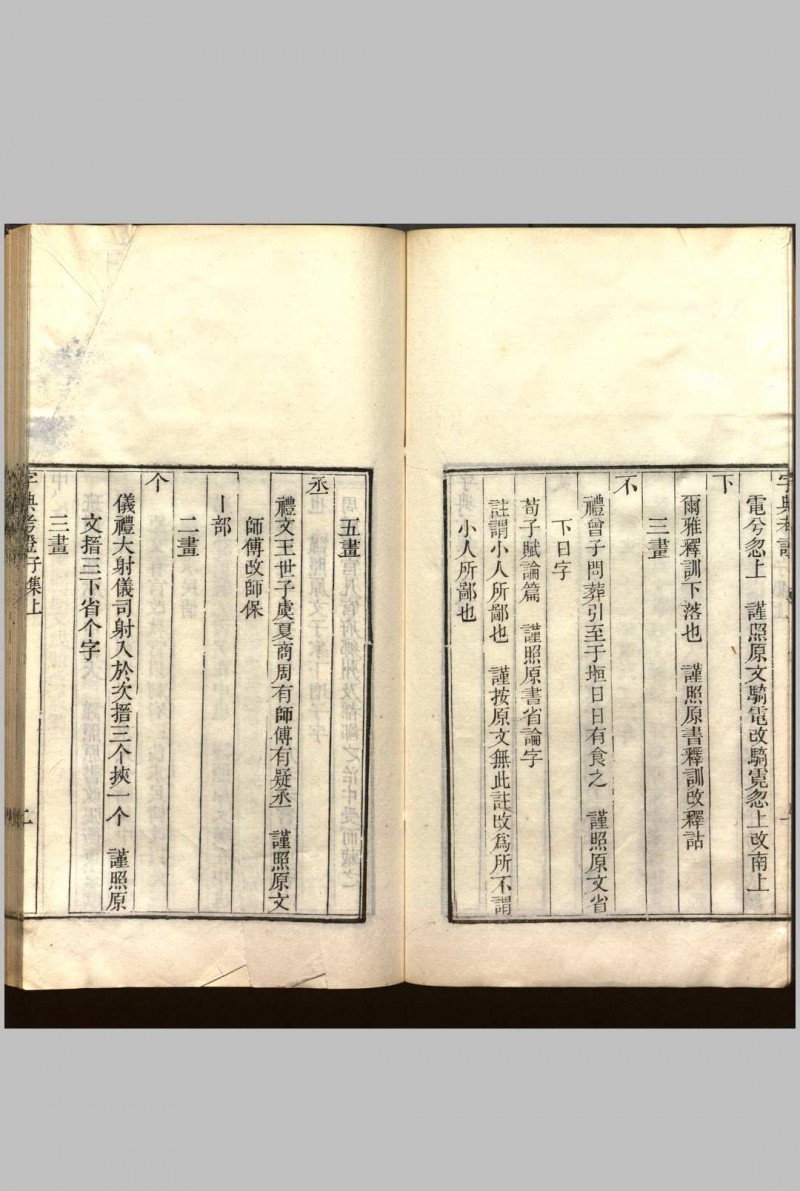 字典考證
電兮忽上　謹照原文騎電改騎霓忽上改南上
下
爾雅釋訓下落也　謹照原書釋訓改釋詁
三畫
不
禮曾子問葬引至于堩日日有食之　謹照原文省
下日字
荀子賦論篇　謹照原書省論字
註謂小人所鄙也　謹按原文無此註改爲所不謂
小人所鄙也
五畫
丞
禮文王世子虞夏商周有師傅有疑丞　謹照原文
師傅改師保
丨部
二畫
个
儀禮大射儀司射入於次搢三个挾一个　謹照原
文搢三下省个字
三畫
字典考證子集上
二